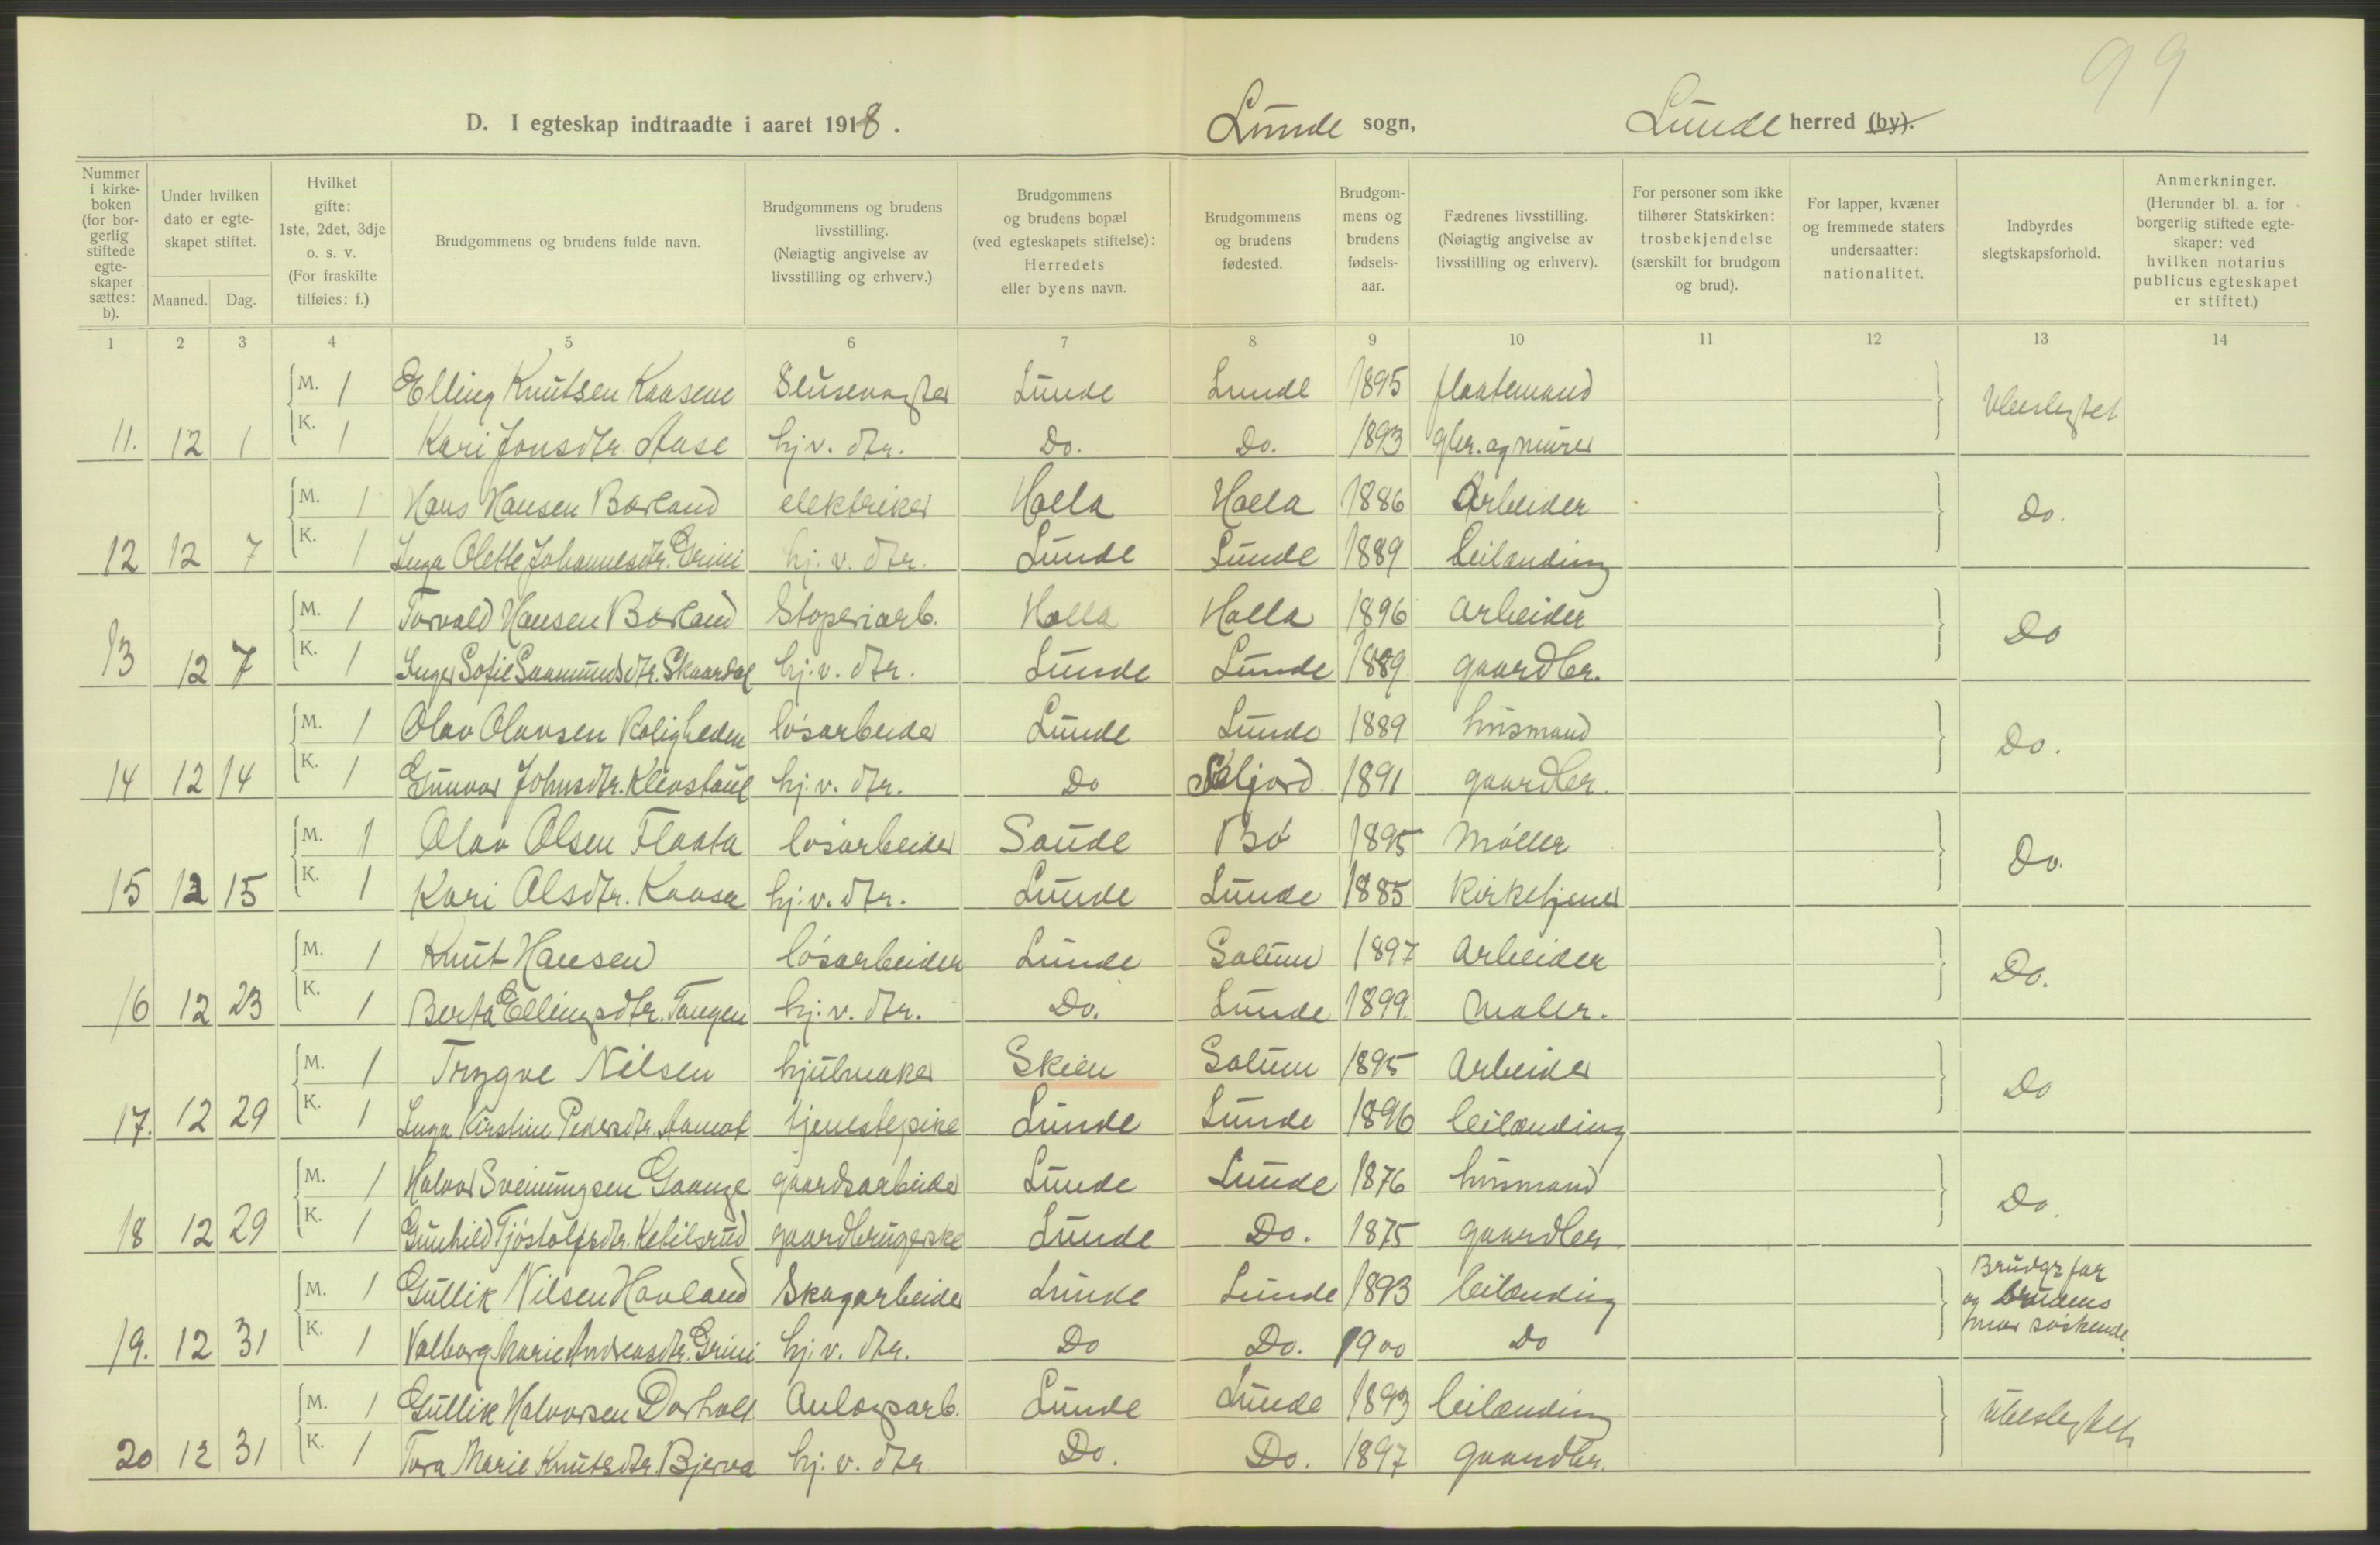 99
D. I egteskap indtraadte i aaret 1918. Lunde sogn, Lunde herred (by).
Nummer i kirkeboken (for borgerlig stiftede egteskaper sættes: b).
Under hvilken dato er egteskapet stiftet.
Maaned. Dag.
Hvilket gifte: 1ste, 2det, 3dje o. s. v. (For fraskilte tilføies: f.)
Brudgommens og brudens fulde navn.
Brudgommens og brudens livsstilling. (Nøiagtig angivelse av livsstilling og erhverv.)
Brudgommens og brudens bopæl (ved egteskapets stiftelse): Herredets eller byens navn.
Brudgommens og brudens fødested.
Brudgommens og brudens fødselsaar.
Fædrenes livsstilling. (Nøiagtig angivelse av livsstilling og erhverv).
For personer som ikke tilhører Statskirken: trosbekjendelse (særskilt for brudgom og brud).
For lapper, kvæner og fremmede staters undersaatter: nationalitet.
Indbyrdes slegtskapsforhold.
Anmerkninger. (Herunder bl. a. for borgerlig stiftede egteskaper: ved hvilken notarius publicus egteskapet er stiftet.)
1 2 3 4 5 6 7 8 9 10 11 12 13 14
M. 1 Elling Knutsen Kaasene Slusevogter Lunde Lunde 1895 fløatemand Ubeslegtet
11. 12 1 K. 1 Kari Jonsdtr. Aase hj v. dtr. Do. Do. 1893 gbr. og murer
M. 1 Hans Hansen Borland elektriker Holla Holla 1886 Arbeider Do.
12 12 7 K. 1 Inga Olette Johannesdtr. Grini hj. v. dtr. Lunde Lunde 1889 Leilænding
M. 1 Torvald Hansen Borland Støperiarb. Holla Holla 1896 arbeider Do
13 12 7 K. 1 Inger Sofie Saamundsdtr. Skaardal hj. v. dtr. Lunde Lunde 1889 gaardbr.
M. 1 Olav Olavsen Roligheden løsarbeider Lunde Lunde 1889 husmand Do.
14 12 14 K. 1 Gunvor Johnsdtr. Klevstaul hj. v. dtr. Do Seljord 1891 gaardbr.
M. 1 Olav Olsen Flaata løsarbeider Saude Bø 1895 Møller Do.
15 12 15 K. 1 Kari Olsdtr. Kaasa hj. v. dtr. Lunde Lunde 1885 Kirketjener
M. 1 Knut Hansen løsarbeider Lunde Solum 1897 arbeider Do.
16 12 23 K. 1 Berta Ellingsdtr. Tangen hj. v. dtr. Do. Lunde 1899 maler.
M. 1 Trygve Nilsen hjulmaker Skien Solum 1895 Arbeider Do
17. 12 29 K. 1 Inga Kirstine Pedersdtr. Aamot tjenestepike Lunde Lunde 1896 leilænding
M. 1 Halvor Sveinungsen Gaange gaardsarbeider Lunde Lunde 1876 husmand Do.
18 12 29 K. 1 Gunhild Tjøstolfsdtr. Ketilsrud gaardbrugerske Lunde Do. 1875 gaardbr.
M. 1 Gullik Nilsen Hovland Skogarbeider Lunde Lunde 1893 leilænding Brudgs far
og brudens
19. 12 31 K. 1 Valborg Marie Andreasdtr. Grini hj. v. dtr. Do Do. 1900 Do mor søskende.
M. 1 Gullik Halvorsen Dorholt Anlægsarb. Lunde Lunde 1893 leilænding Ubeslegtet
20 12 31 K. 1 Tora Marie Knutsdtr. Bjerva hj. v. dtr Do. Do. 1897 gaardbr.